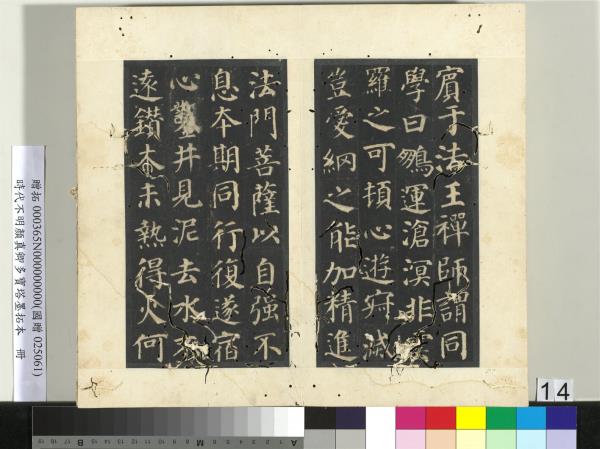 賓于法王禪師謂同
學曰鵬運滄溟非雲
羅之可頓心遊寂滅
豈愛網之能加精進
法門菩薩以自强不
息本期同行復遂宿
心鑿井見泥去水不
遠鑽木未熱得火何
贈拓 000365N000000000(國贈 025061)
時代不明顏真卿多寶塔墨拓本 冊
14
A
M
B